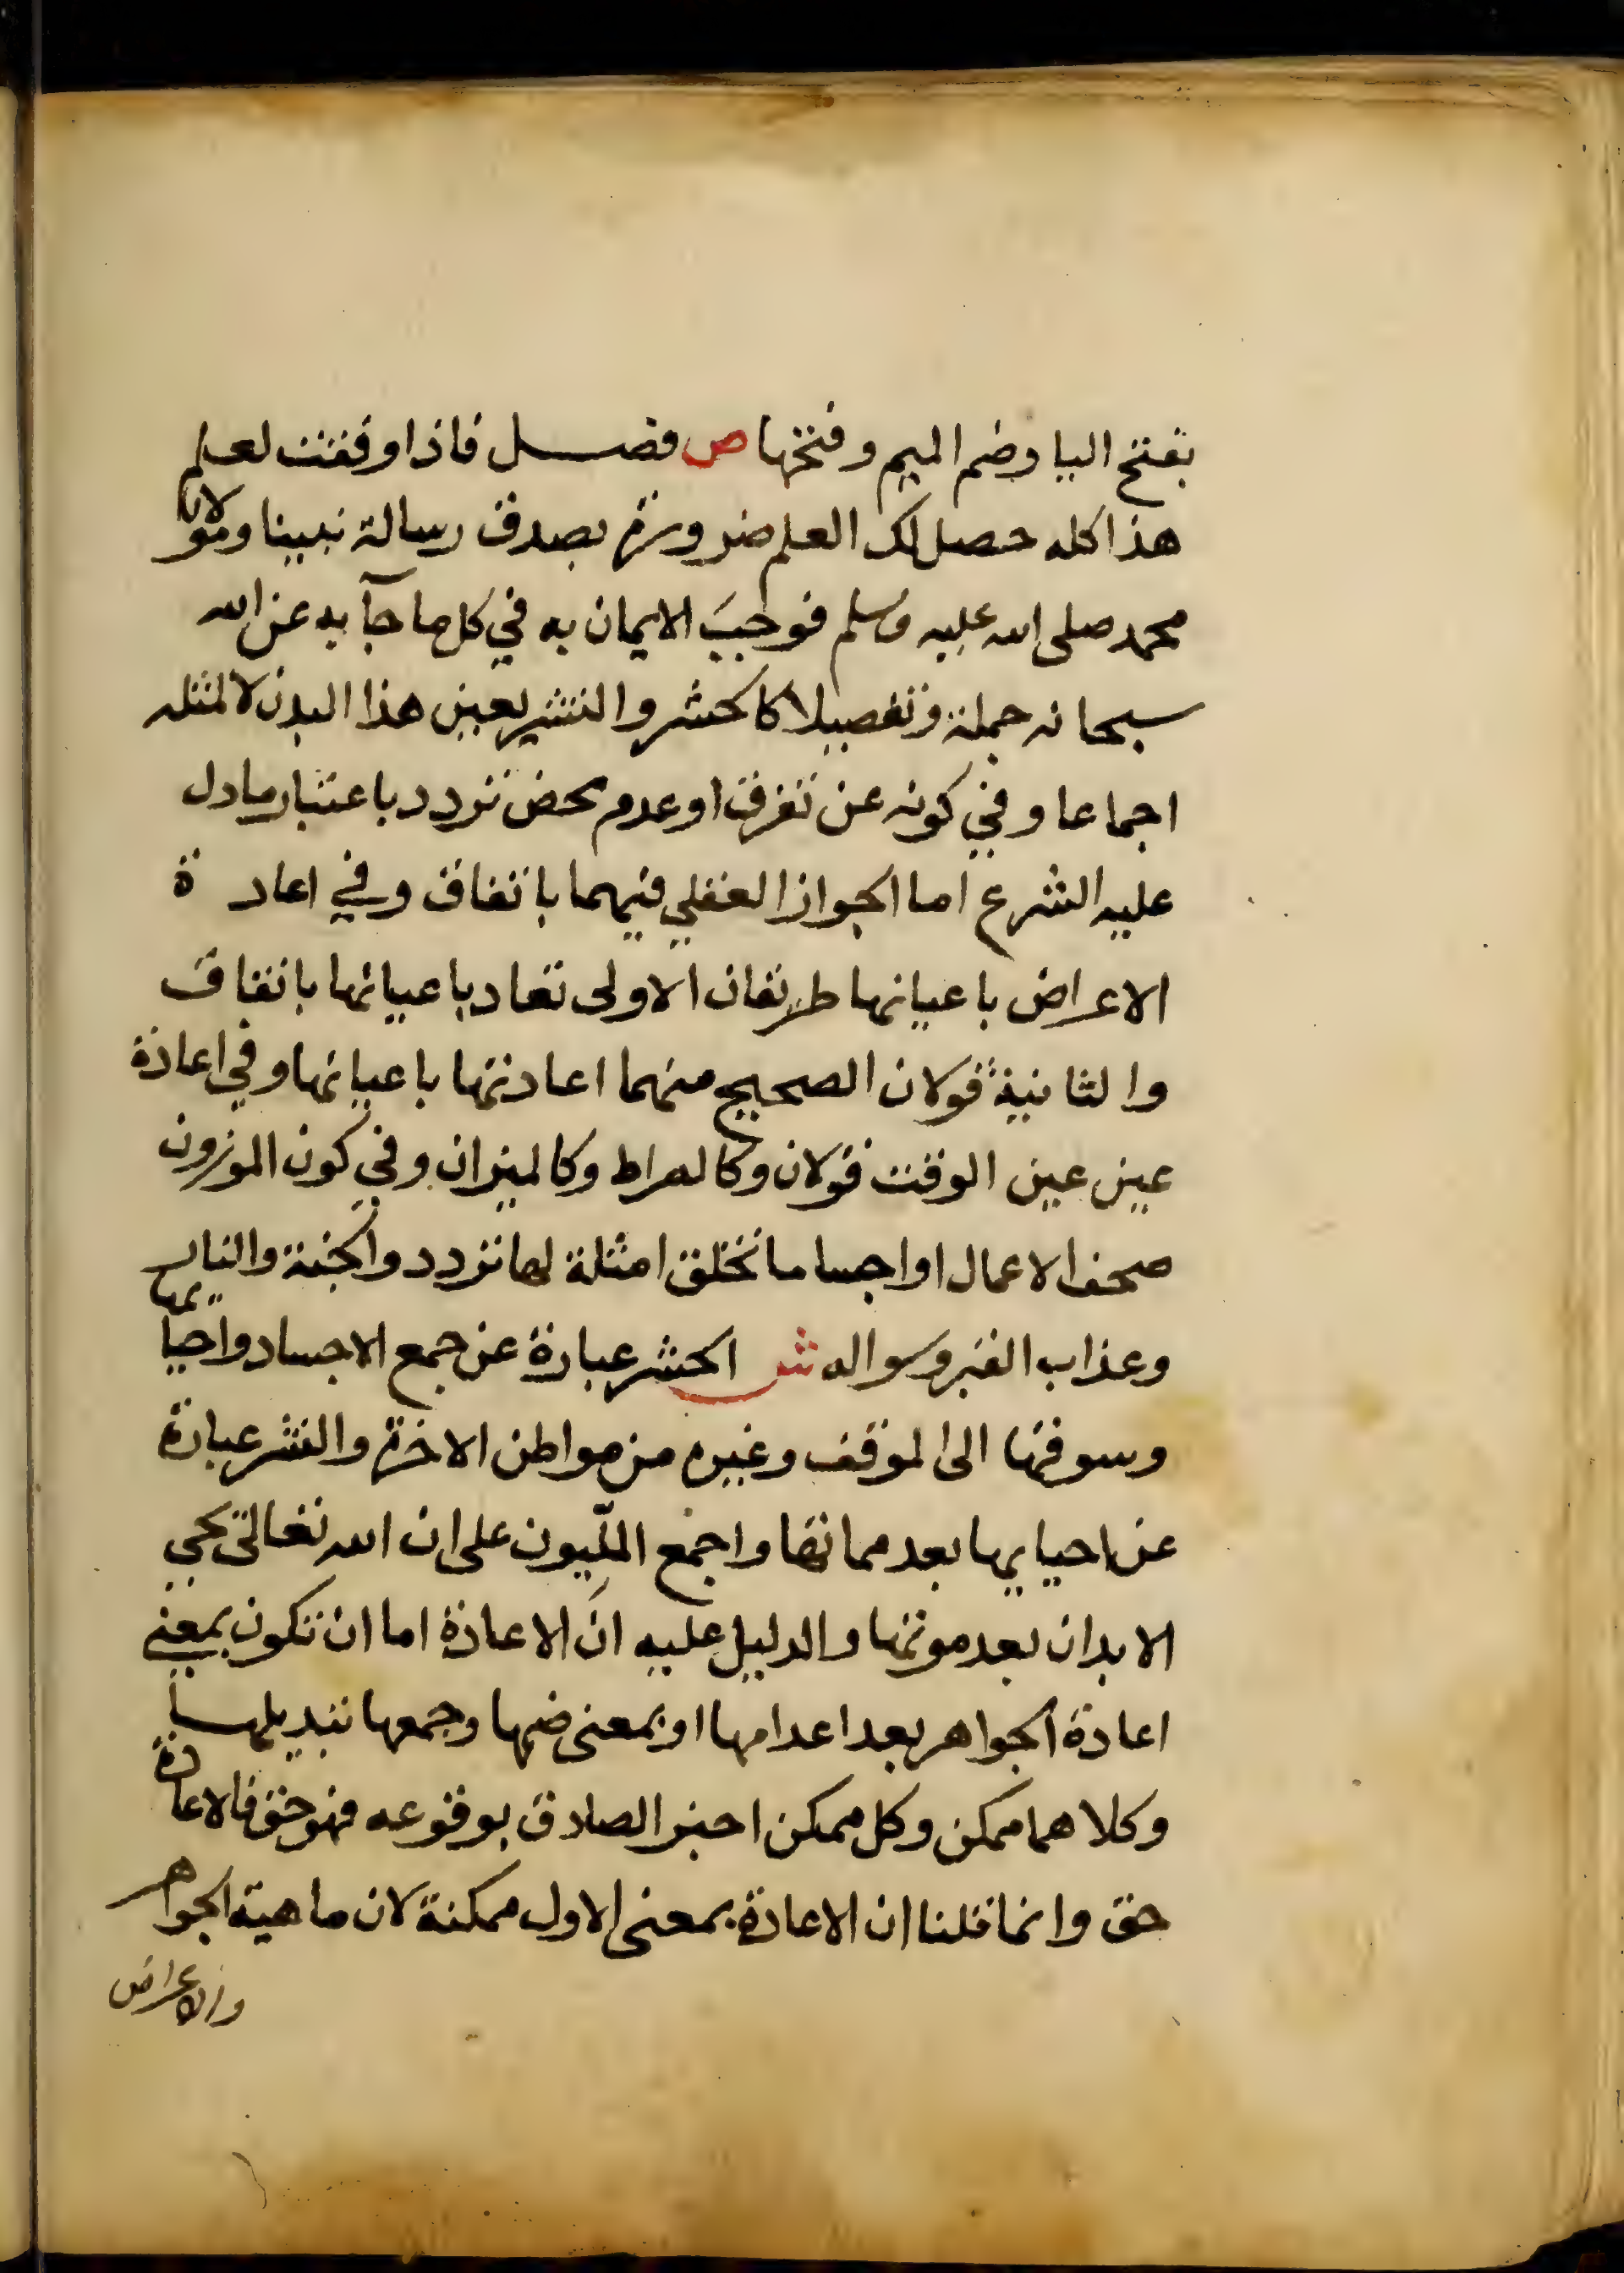 بفتح اليا وضم الميم وفتحها ص فصل فاذا وفقت لعلم
هذا كله حصل لك العلم ضرورة بصدق رسالة نبينا ومولانا
محمد صلى الله عليه وسلم فوجبَ الايمان به في كل ما جآ به عن الله
سبحانه جملة وتفصيلا كالحشر والنشر لعين هذا البدن لا لمثله
اجماعا وفي كونه عن تفرق او عدم محض تردد باعتبار ما دل
عليه الشرع اما الجواز العقلي فيهما باتفاق وفي اعادة
الاعراض باعيانها طريقان الاولى تعاد باعيانها باتفاق
والثانية قولان الصحيح منهما اعادتها باعيانها وفي اعادة
عين عين الوقت قولان وكالصراط وكالميزان وفي كون الموزون
صحف الاعمال او اجساما تخلق امثلة لها تردد والجنة والنار
وعذاب القبر وسواله ش الحشر عبارة عن جمع الاجساد واحيايها
وسوقها الى الموقف وغيره من مواطن الاخرة والنشر عبارة
عن احيايها بعد مماتها واجمع الملّيون على ان الله تعالى يحي
الابدان بعد موتها والدليل عليه انَ الاعادة اما ان تكون بمعنى
اعادة الجواهر بعد اعدامها او بمعنى ضمها وجمعها بتبديلها
وكلاهما ممكن وكل ممكن اخبر الصادق بوقوعه فهو حق فالاعادة
حق وانما قلنا ان الاعادة بمعنى الاول ممكنة لان ماهية الجواهر
والاعراض